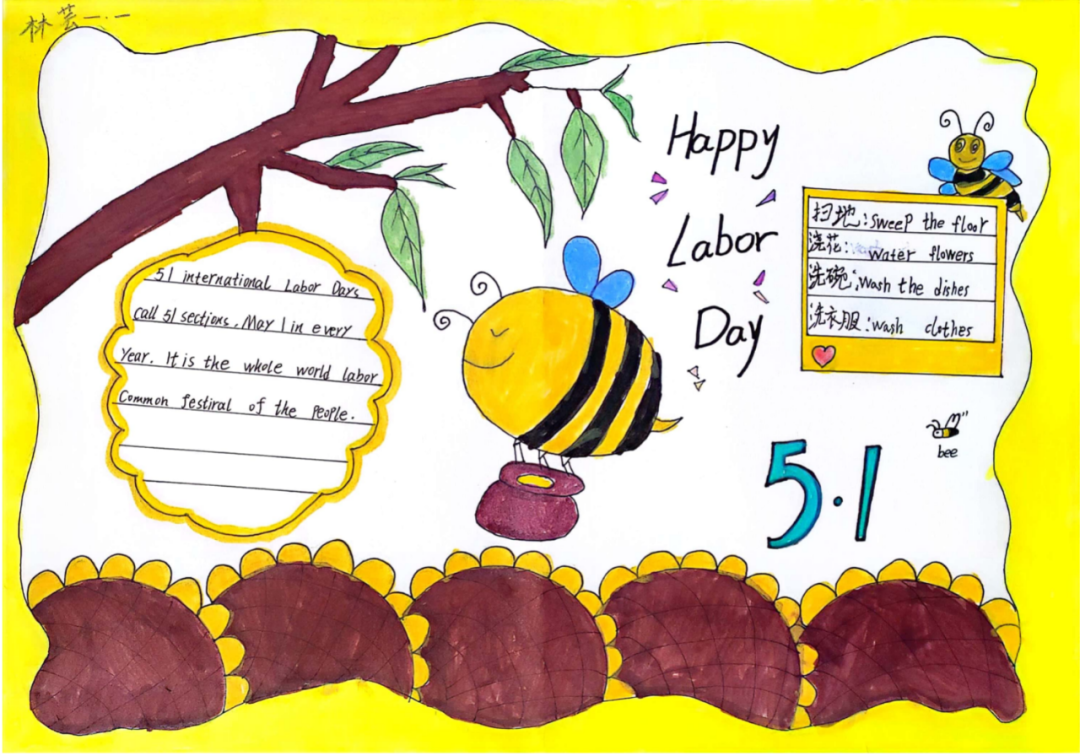 林芸一.一
Happy
Labor
Day
扫地:sweep the floor
浇花: water flowers
洗碗:wash the dishes
洗衣服:wash clothes
51 international Labor Days
call 51 sections. May 1 in every
Year. It is the whole world labor
Common festiral of the people.
5.1
bee